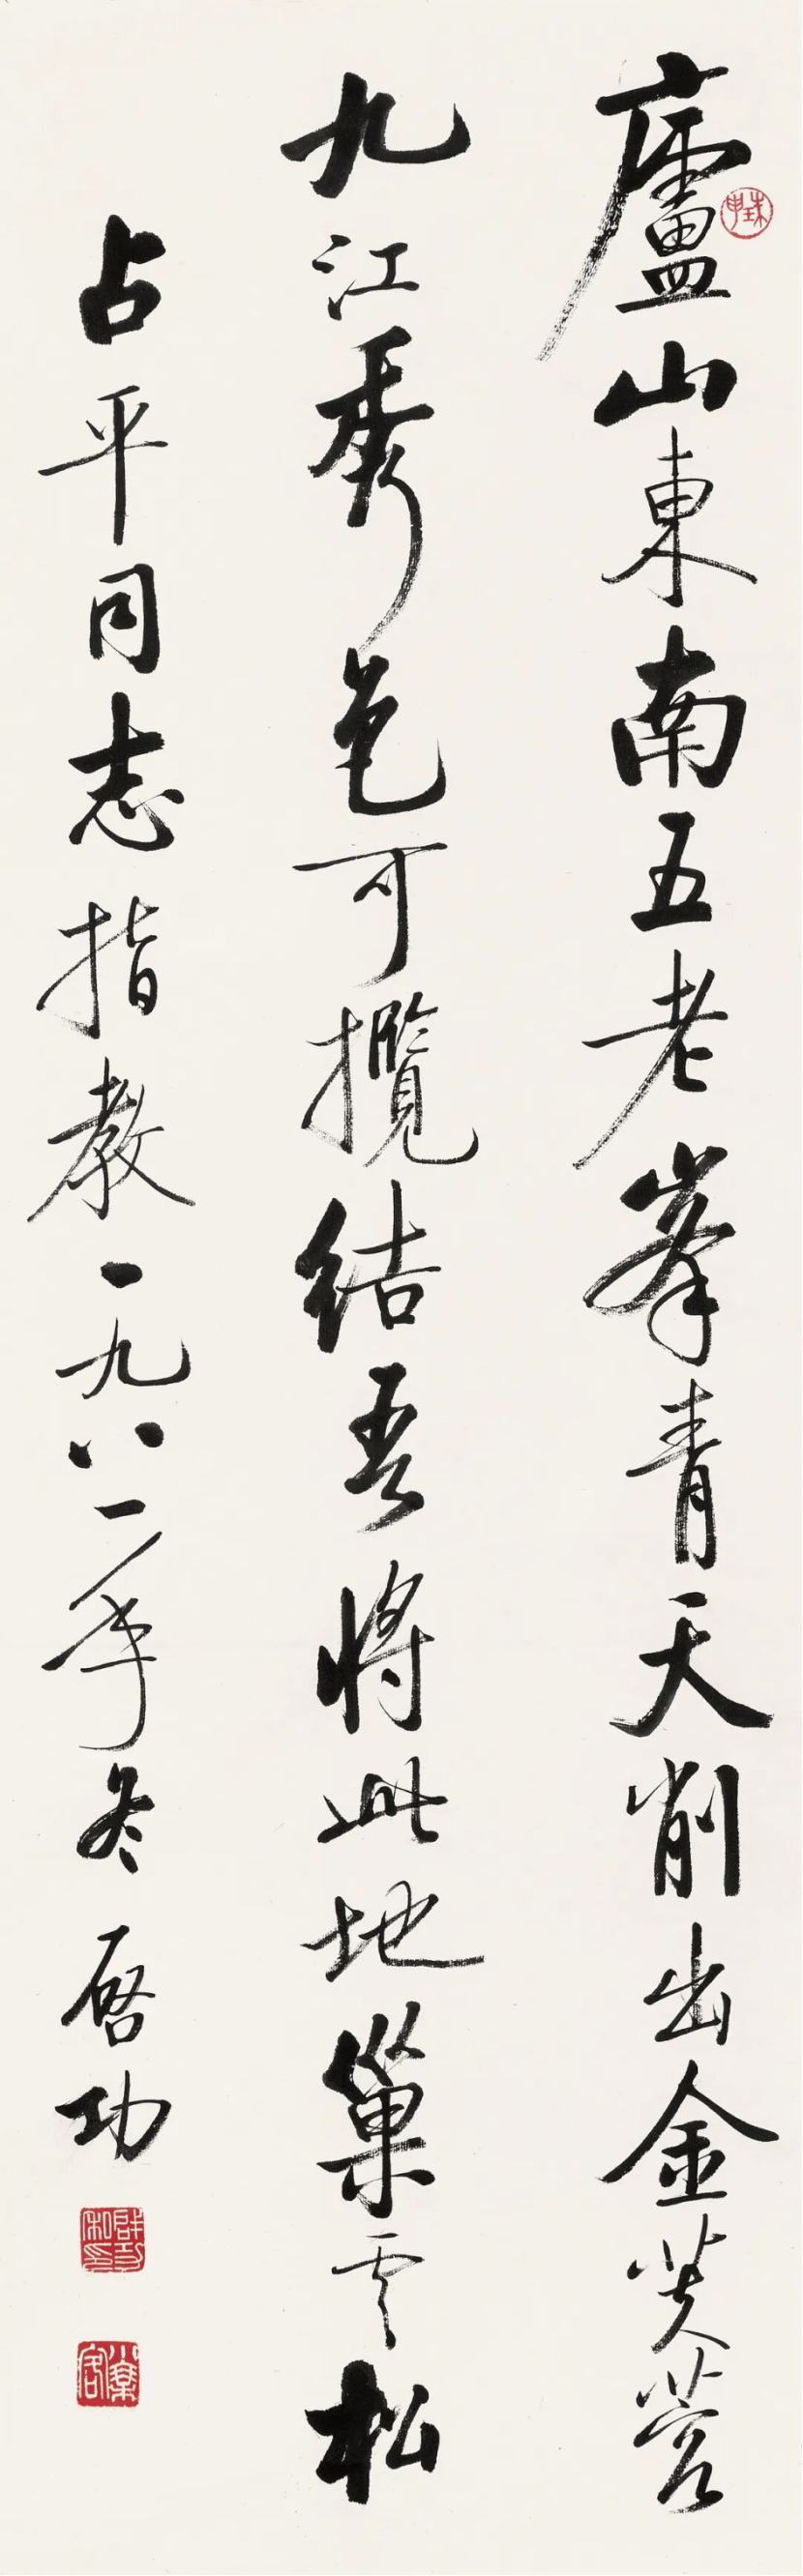 廬山東南五老峯青天削出金芙蓉
九江秀色可攬結吾將此地巢雲松
占平同志指教一九八一年冬 啓功